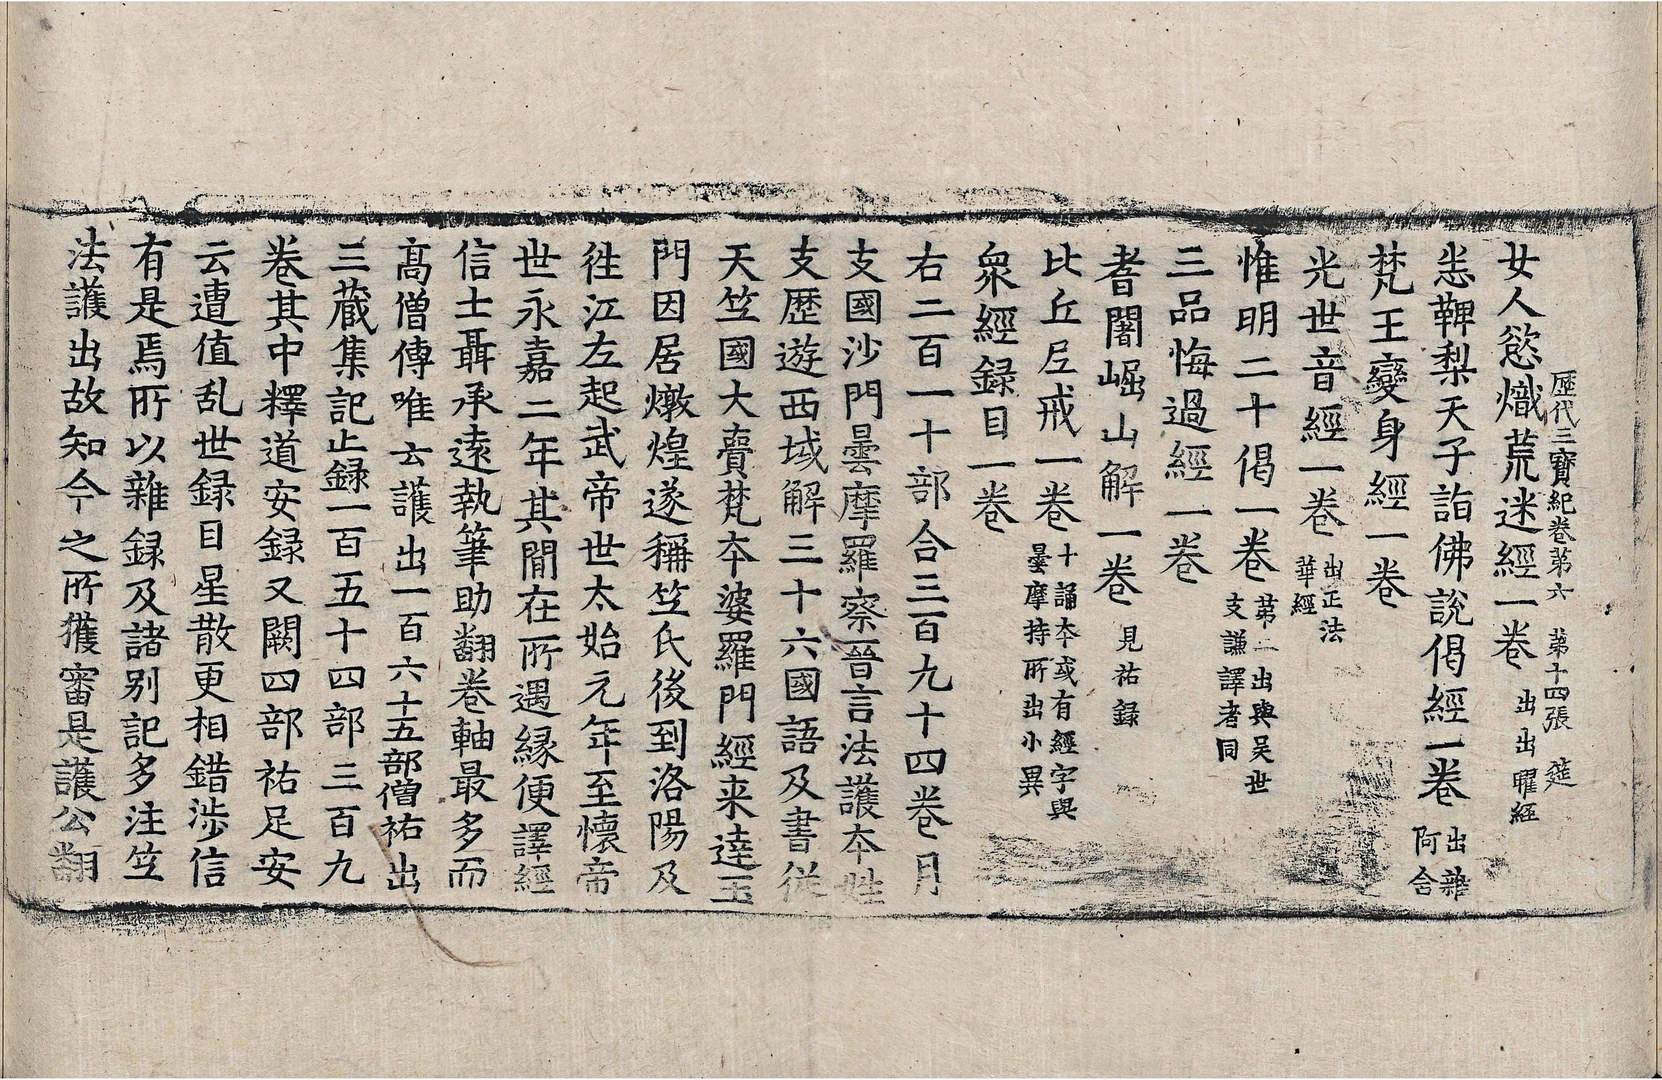 歷代三寶紀卷第六　第十四張　筵
女人慾熾荒迷經一卷 出出曜經
悲鞞梨天子詣佛說偈經一卷 出雜阿含
梵王變身經一卷
光世音經一卷 出正法華經
惟明二十偈一卷 第二出與吴世支謙譯者同
三品悔過經一卷
耆闍崛山解一卷 見祐録
比丘尼戒一卷 十誦夲或有經字與曇摩持所出小異
衆經録目一卷
右二百一十部合三百九十四卷月
支國沙門曇摩羅察晉言法護夲姓
支歷遊西域解三十六國語及書從
天竺國大賷梵夲婆羅門經来達玉
門因居燉煌遂稱竺氏後到洛陽及
徃江左起武帝世太始元年至懷帝
世永嘉二年其閒在所遇緣便譯經
信士聶承遠執筆助翻卷軸最多而
髙僧傳唯云護出一百六十五部僧祐出
三藏集記止録一百五十四部三百九
卷其中釋道安録又闕四部祐足安
云遭值乱世録目星散更相錯涉信
有是焉所以雜録及諸别記多注竺
法護出故知今之所獲審是護公翻